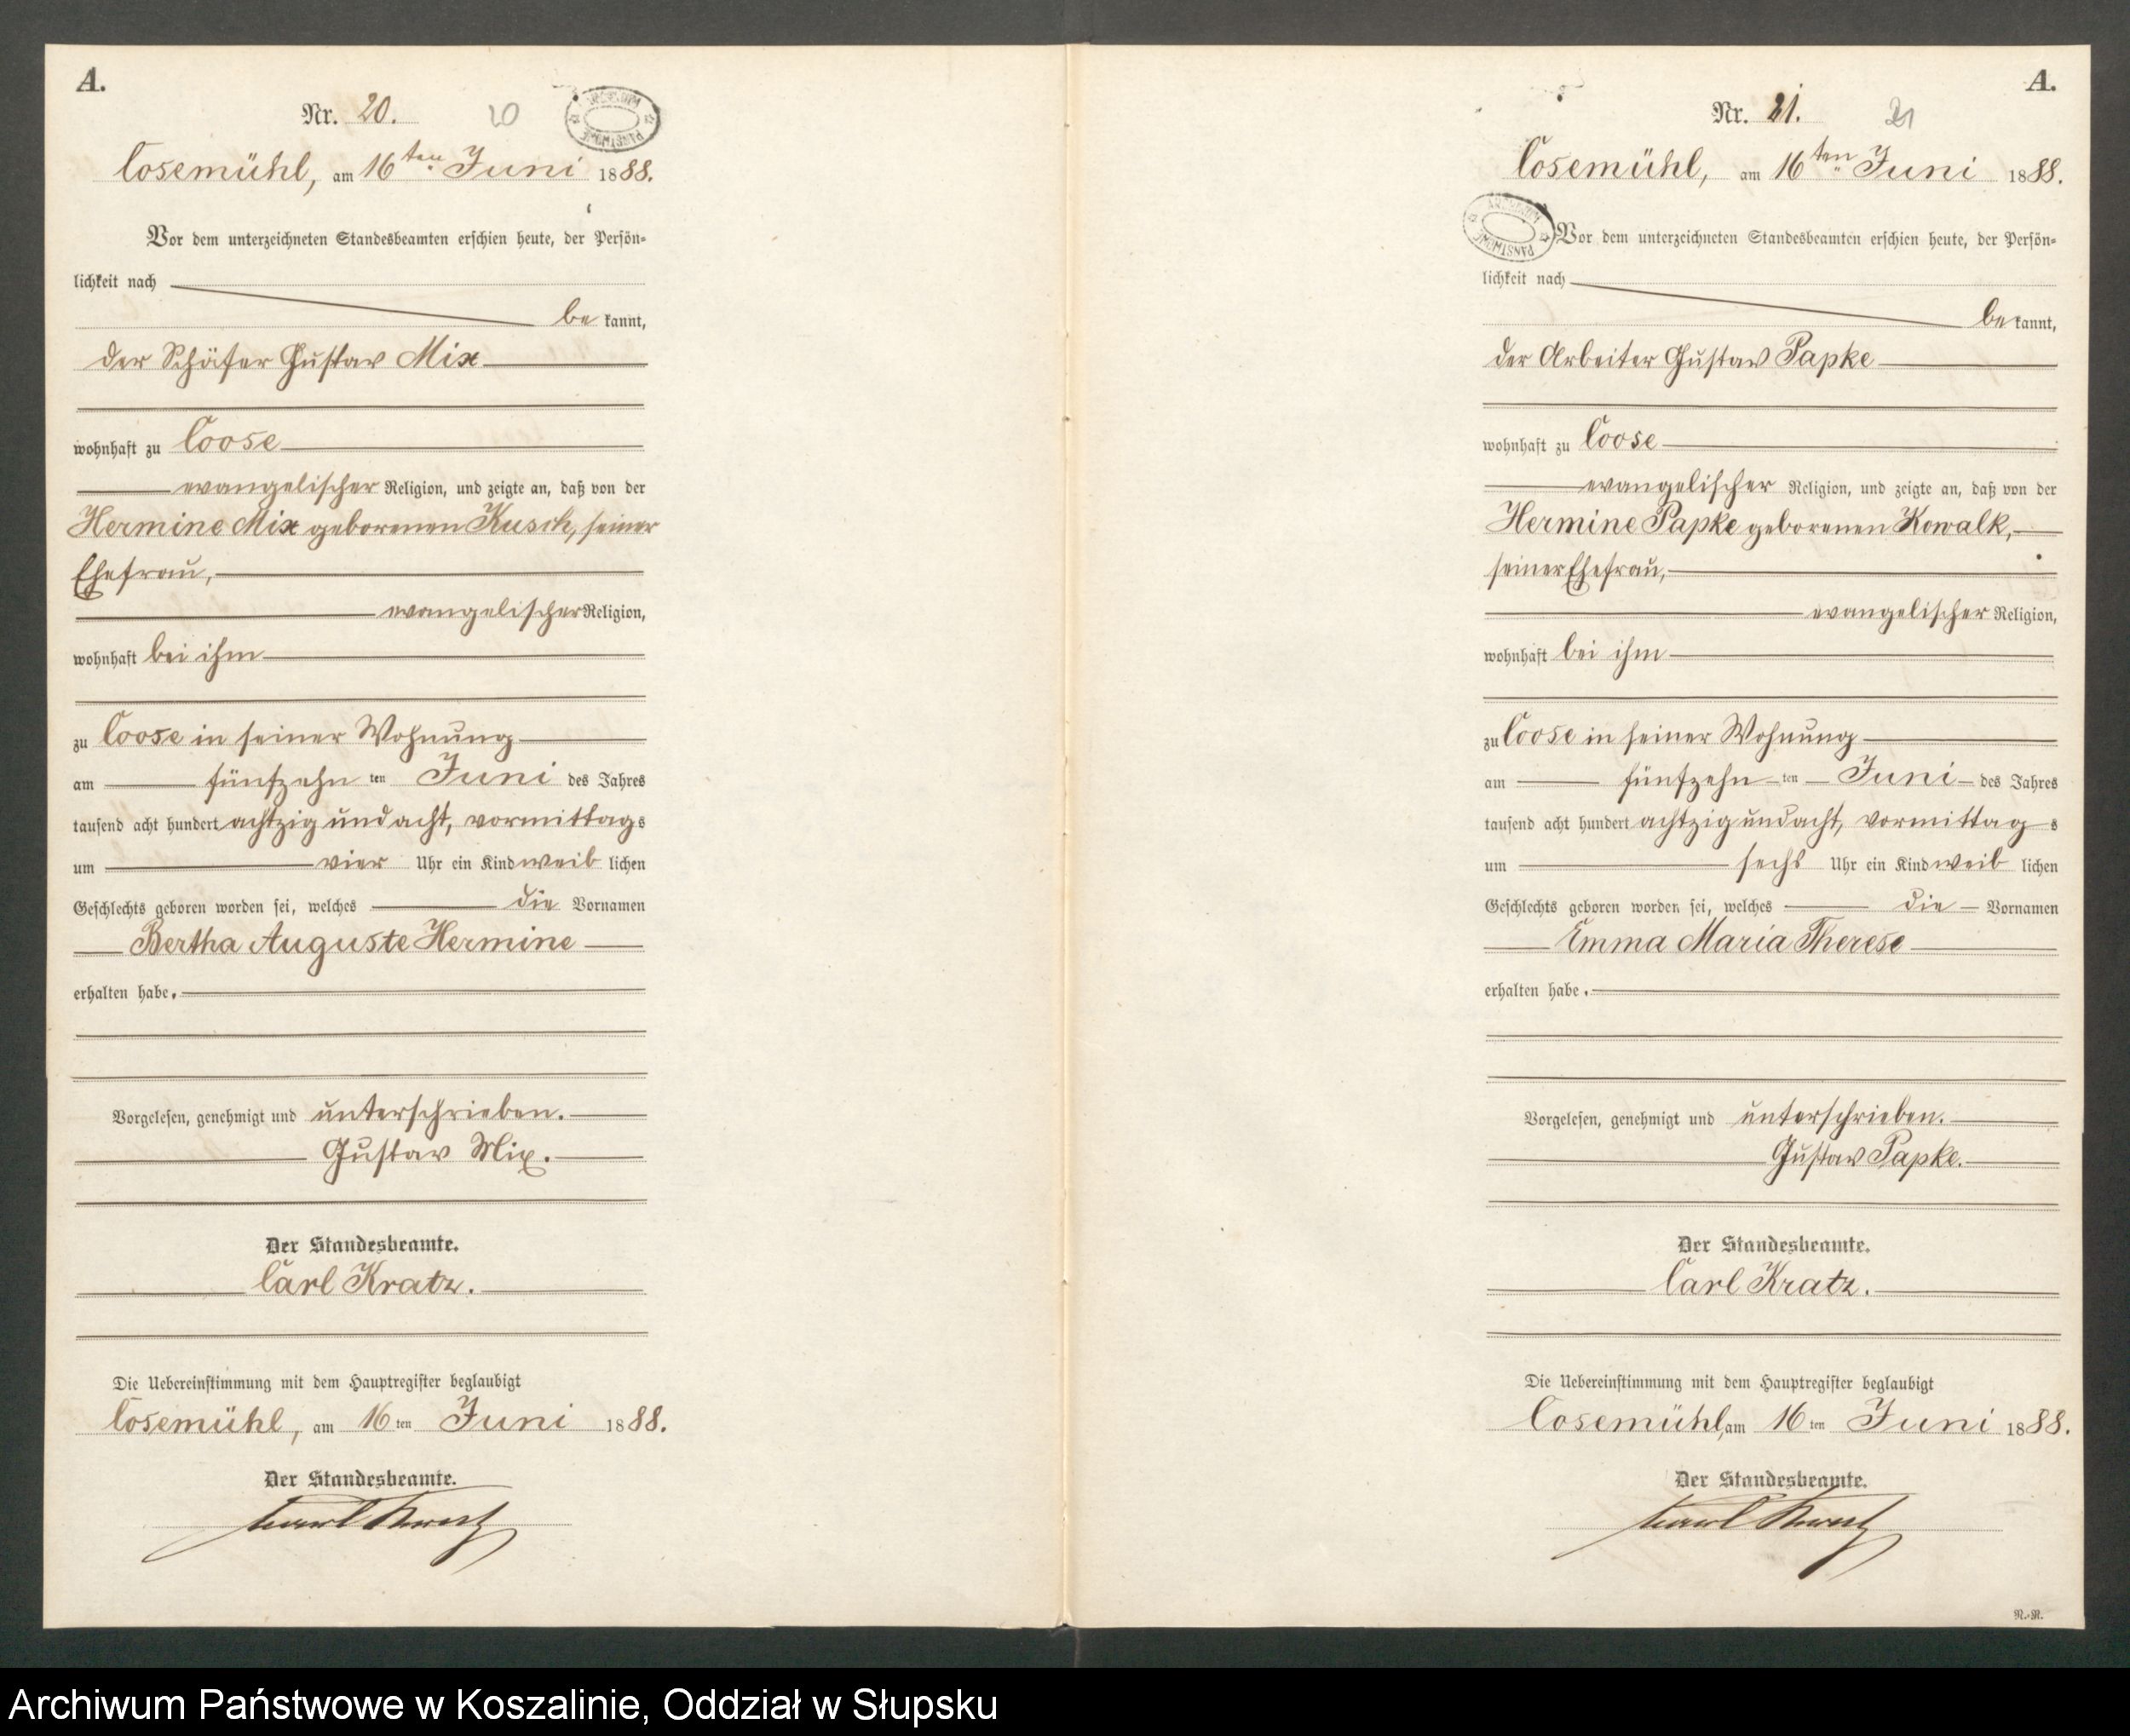 A.
Nr. 20.
20
ARCHIWUM PAŃSTWOWE
Cosemühl, am 16ten Juni 1888.
Vor dem unterzeichneten Standesbeamten erschien heute, der Persön-
lichkeit nach
be kannt,
der Schäfer Gustav Mix
wohnhaft zu Coose
evangelischer Religion, und zeigte an, daß von der
Hermine Mix geborenen Kusch, seiner
Ehefrau,
evangelischer Religion,
wohnhaft bei ihm
zu Coose in seiner Wohnung
am fünfzehn ten Juni des Jahres
tausend acht hundert achtzig und acht, vormittags
um vier Uhr ein Kind weib lichen
Geschlechts geboren worden sei, welches die Vornamen
Bertha Auguste Hermine
erhalten habe.
Vorgelesen, genehmigt und unterschrieben.
Gustav Mix.
Der Standesbeamte.
Carl Kratz.
Die Uebereinstimmung mit dem Hauptregister beglaubigt
Cosemühl, am 16 ten Juni 1888.
Der Standesbeamte.
Carl Kratz
A.
Nr. 21.
21
Cosemühl, am 16ten Juni 1888.
ARCHIWUM PAŃSTWOWE
Vor dem unterzeichneten Standesbeamten erschien heute, der Persön-
lichkeit nach
be kannt,
der Arbeiter Gustav Papke
wohnhaft zu Coose
evangelischer Religion, und zeigte an, daß von der
Hermine Papke geborenen Kowalk,
seiner Ehefrau,
evangelischer Religion,
wohnhaft bei ihm
zu Coose in seiner Wohnung
am fünfzehn ten Juni des Jahres
tausend acht hundert achtzig und acht, vormittags
um sechs Uhr ein Kind weib lichen
Geschlechts geboren worden sei, welches die Vornamen
Emma Maria Therese
erhalten habe.
Vorgelesen, genehmigt und unterschrieben.
Gustav Papke.
Der Standesbeamte.
Carl Kratz.
Die Uebereinstimmung mit dem Hauptregister beglaubigt
Cosemühl, am 16 ten Juni 1888.
Der Standesbeamte.
Carl Kratz
N.-N.
Archiwum Państwowe w Koszalinie, Oddział w Słupsku